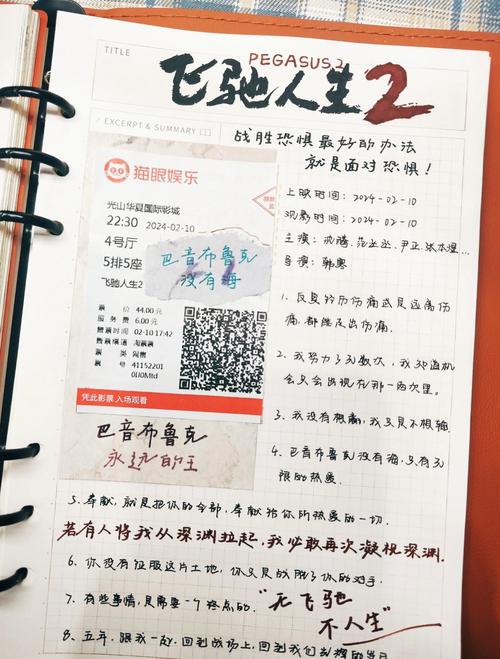 TITLE
PEGASUS 2
飞驰人生2
EXCERPT & SUMMARY
战胜恐惧最好的办法
就是面对恐惧！
猫眼娱乐
光山华夏国际影城
22:30 2024-02-10
4号厅
5排5座
飞驰人生2
巴音布鲁克
没有海
票 价 44.00元
服务费 6.00元
售票时间 02-10 17:42
售票渠道 淘票票
票 类 网售
票 号 41152201
0IJ0Mtd
凭此影票 入场观看
巴音布鲁克
永远的王
上映时间：2024-02-10
观影时间：2024-02-10
主演：沈腾、范丞丞、尹正、张本煜...
导演：韩寒
1、反复经历伤痛或是远离伤
痛，都能走出伤痛。
2、我努力了无数次，我知道机
会只会出现在那一两次里。
3、我没有想赢，我只是不想输
4、巴音布鲁克没有海，只有无
限的热爱
5、奉献，就是把你的全部，奉献给你所热爱的一切.
若有人将我从深渊拉起，我必敢再次凝视深渊.
6、你没有征服这片土地，你只是战胜了你的对手.
7、有些事情，是需要一个终点的.
“无飞驰
不人生”
8、五年，跟我一起，回到战场上，回到我们